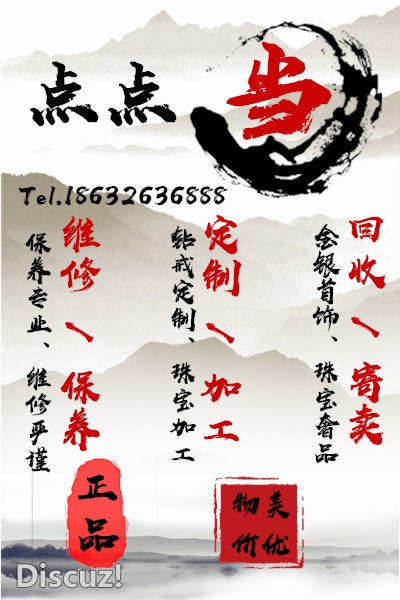 点点当
Tel.18632636888
回收、寄卖
金银首饰、珠宝奢品
定制、加工
钻戒定制、珠宝加工
维修、保养
保养专业、维修严谨
正品
美优
物价
Discuz!